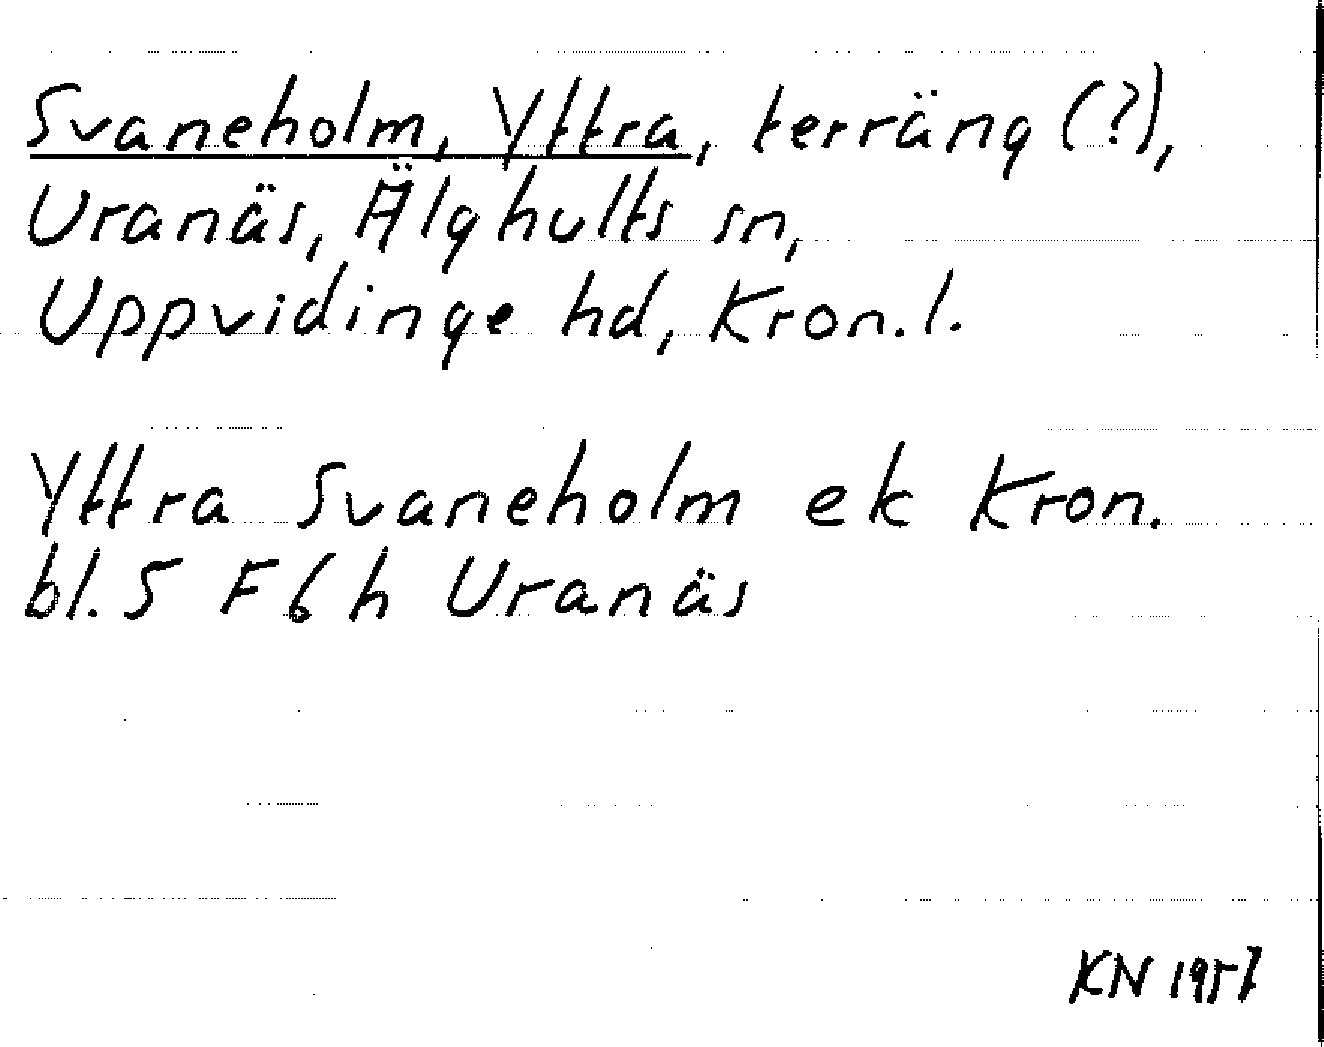 Svaneholm, Yttra, terräng (?),
Uranäs, Älghults sn,
Uppvidinge hd, Kron. l.
Yttra Svaneholm ek Kron.
bl. 5 F 6 h Uranäs
KN 1957